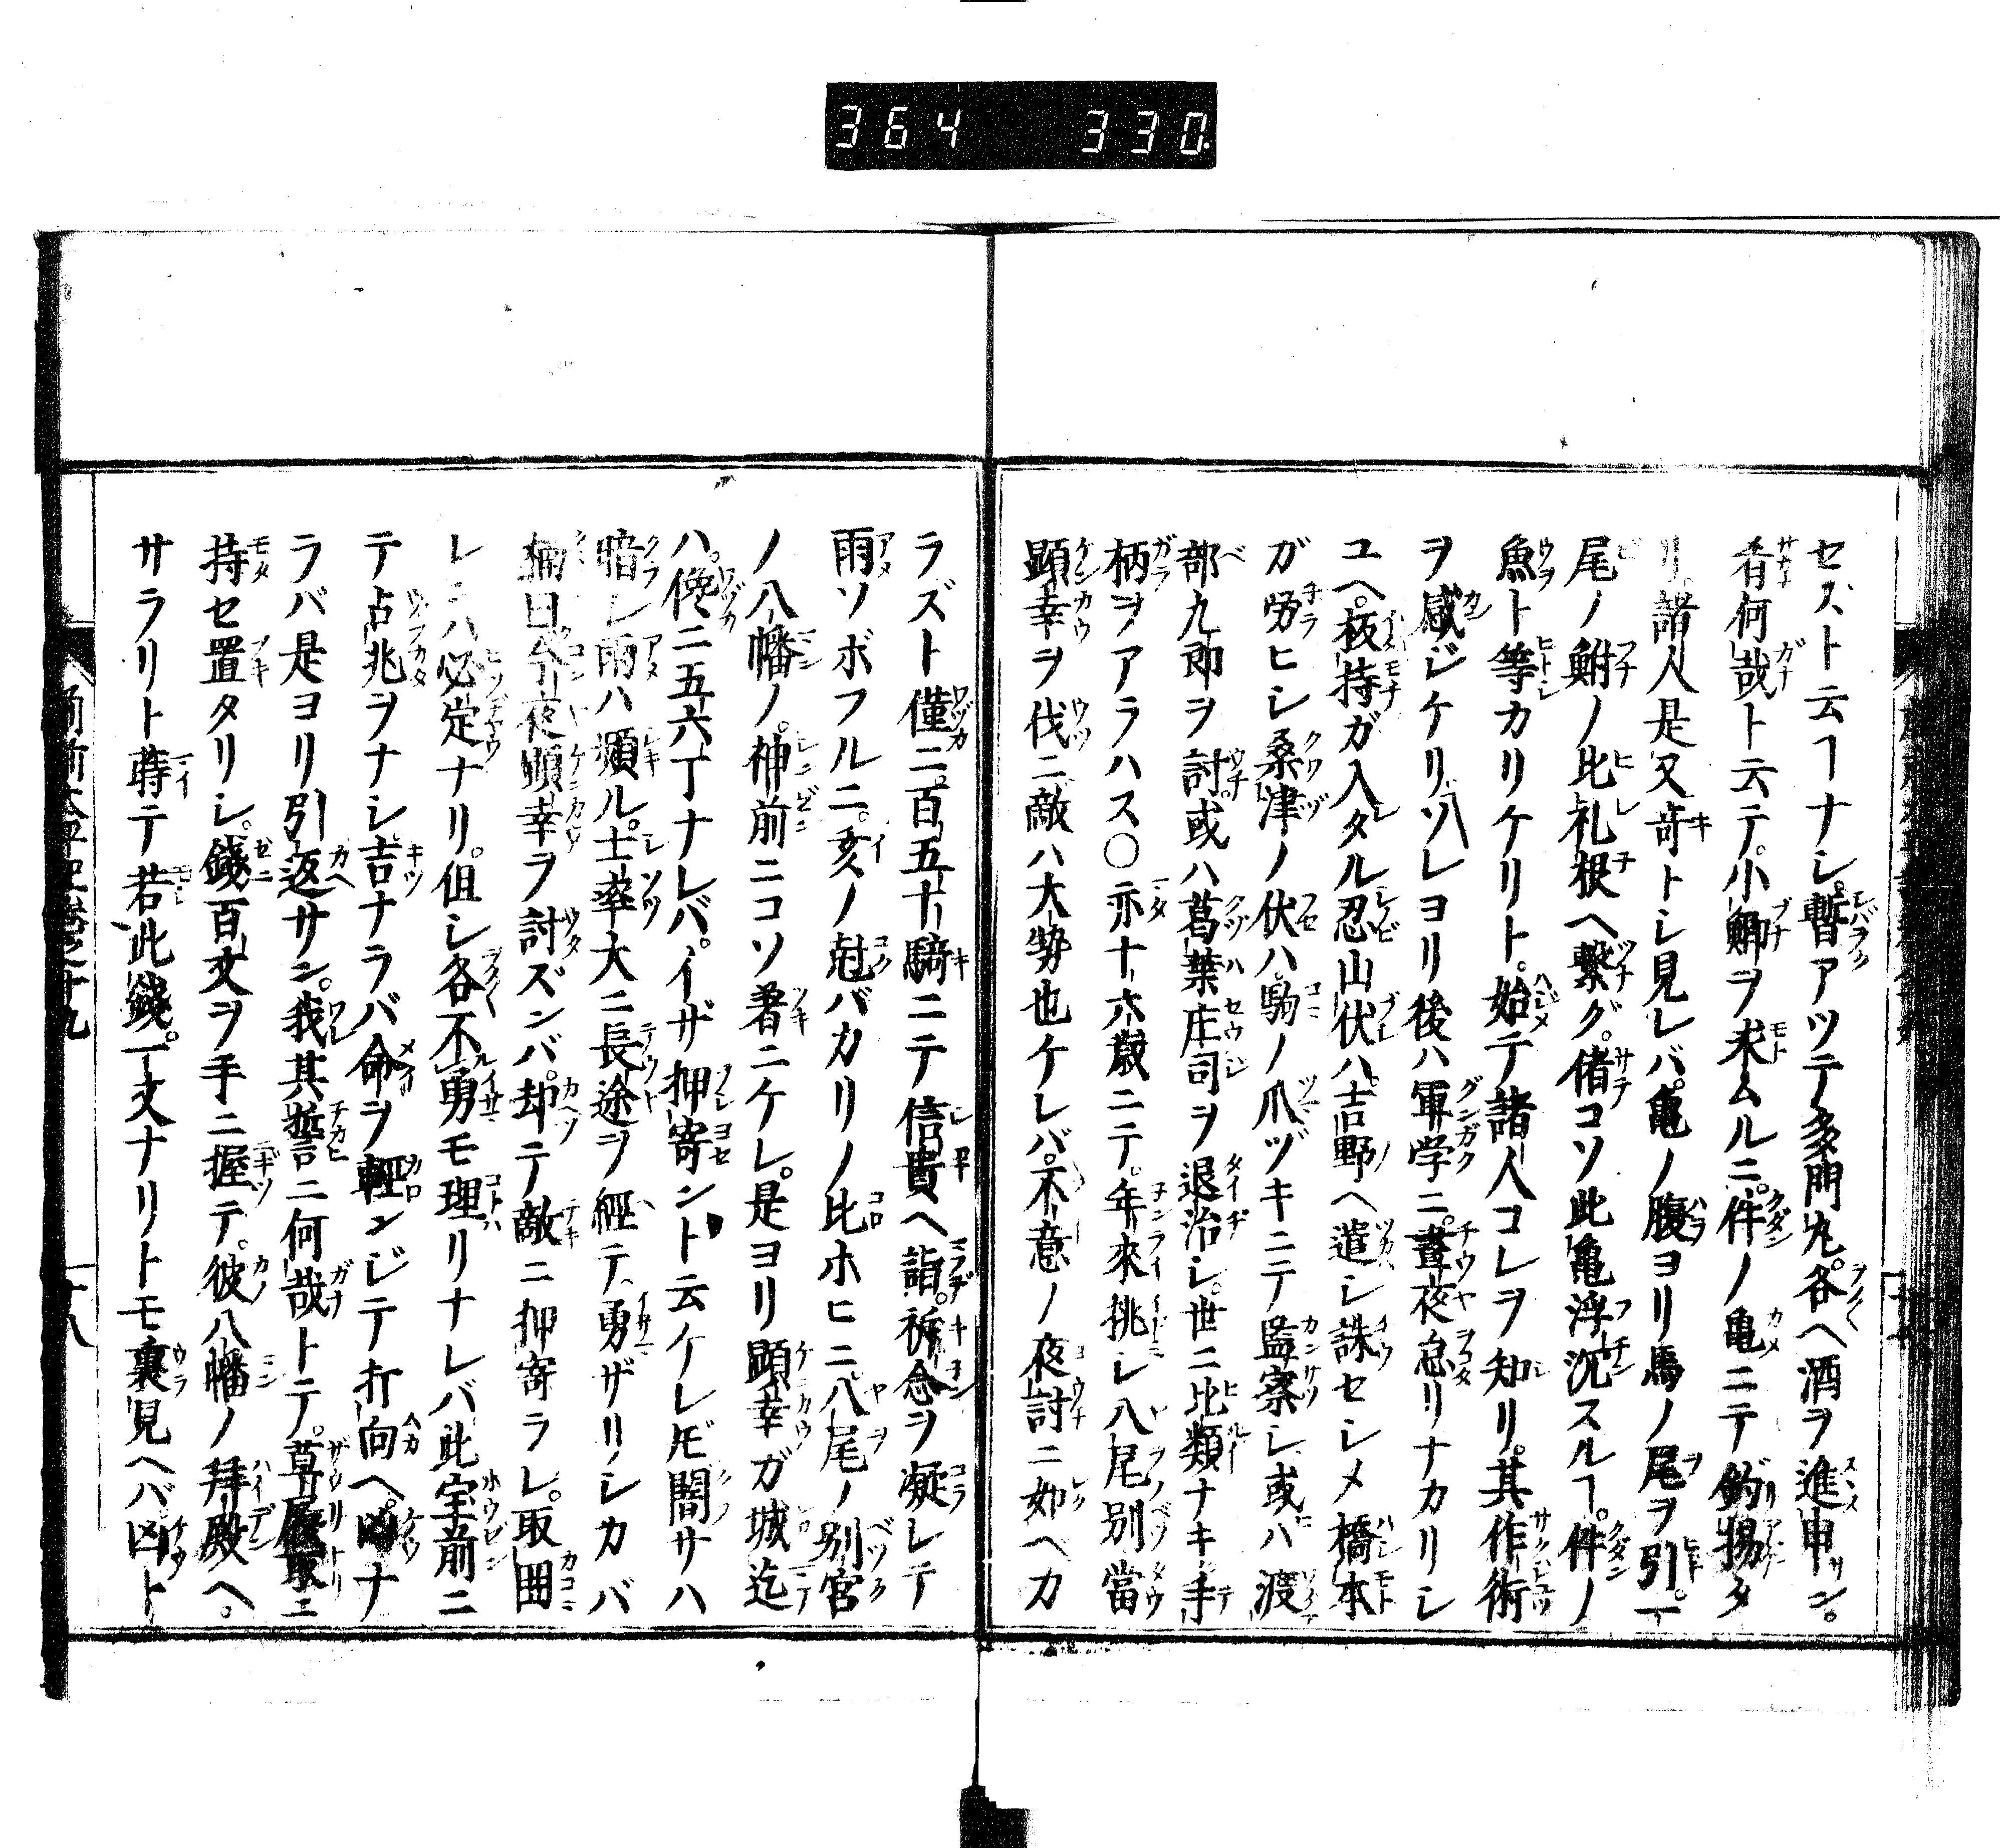 364 330
セズト云ヿナシ。暫アツテ多門丸。各ヘ酒ヲ進申サン。
肴何哉ト云テ。小鮒ヲ求ムルニ。件ノ亀ニテ釣揚タ
リ。諸人是又竒トシ見レバ。亀ノ腹ヨリ馬ノ尾ヲ引。一
尾ノ鮒ノ比礼根ヘ繋グ。偖コソ此亀浮沉スルヿ。件ノ
魚ト等カリケリト。始テ諸人コレヲ知リ。其作術
ヲ感ジケリ。ソレヨリ後ハ軍学ニ。晝夜怠リナカリシ
ユヘ。板持ガ入タル忍山伏ハ吉野ヘ遣シ誅セシメ橋本
ガ労ヒシ桑津ノ伏ハ。駒ノ爪ヅキニテ監察シ。或ハ渡
部九郎ヲ討。或ハ葛葉庄司ヲ退治シ。世ニ比類ナキ手
柄ヲアラハス〇亦十六歳ニテ。年來挑シ八尾別當
顕幸ヲ伐ニ。敵ハ大勢也ケレバ。不意ノ夜討ニ如ベカ
ラズト。僅二百五十騎ニテ信貴ヘ詣。祈念ヲ凝レテ
雨ソボフルニ。亥ノ尅バカリノ比ホヒニ八尾ノ別宮
ノ八幡ノ。神前ニコソ着ニケレ。是ヨリ顕幸ガ城迄
ハ。僅ニ五六丁ナレバ。イザ押寄ント云ケレ𪜈闇サハ
暗シ雨ハ頻ル。士卒大ニ長途ヲ經テ。勇ザリシカバ
楠曰今夜顕幸ヲ討ズンバ。却テ敵ニ押寄ラレ。取囲
レンハ必定ナリ。但シ各不勇モ理リナレバ此宝前ニ
テ占兆ヲナシ吉ナラバ命ヲ輕ンジテ打向ヘ。凶ナ
ラバ是ヨリ引返サン。我其誓ニ何哉トテ。草履取ニ
持セ置タリシ。錢百文ヲ手ニ握テ。彼八幡ノ拜殿ヘ。
サラリト蒔テ若此錢。一文ナリトモ裏見ヘバ凶ト
十八